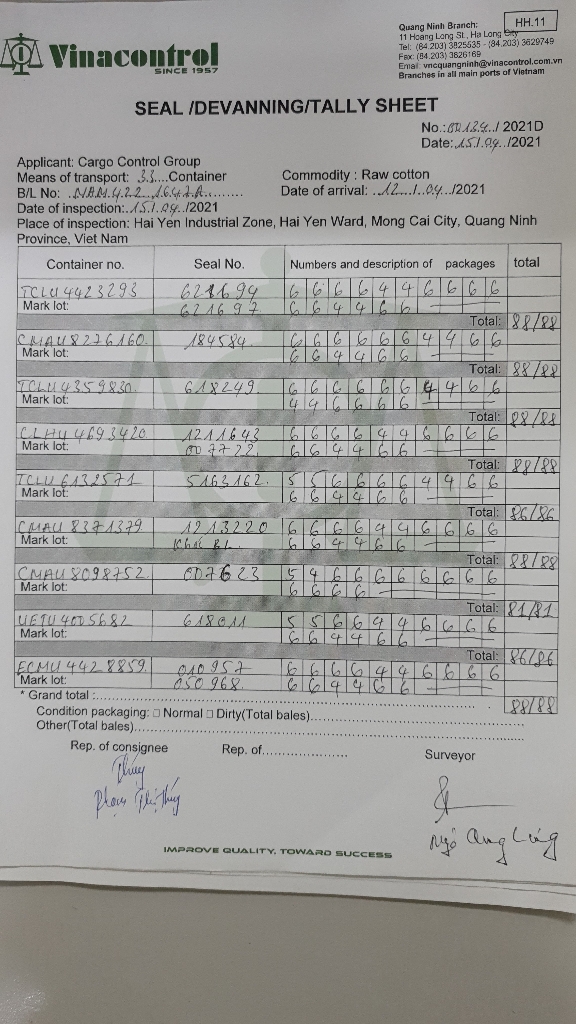 Vinacontrol
SINCE 1957
Quang Ninh Branch:
HH.11
11 Hoang Long St., Ha Long City
Tel: (84.203) 3825535 - (84.203) 3629749
Fax: (84.203) 3826169
Email: vncquangninh@vinacontrol.com.vn
Branches in all main ports of Vietnam
SEAL /DEVANNING/TALLY SHEET
No.: 2021D
Date: 15/04/2021
Applicant: Cargo Control Group
Means of transport: 33 Container
Commodity : Raw cotton
B/L No: NAM4221647A
Date of arrival: 12/04/2021
Date of inspection: 15/04/2021
Place of inspection: Hai Yen Industrial Zone, Hai Yen Ward, Mong Cai City, Quang Ninh
Province, Viet Nam
Container no. Seal No. Numbers and description of packages total
TCLU4423293 621694 6 6 6 6 4 4 6 6 6 6
Mark lot: 621697 6 6 4 4 6 6
Total: 88/88
CMAU8276160 184584 6 6 6 6 6 6 4 4 6 6
Mark lot: 6 6 4 4 6 6
Total: 88/88
TCLU4359830 618249 6 6 6 6 6 6 4 4 6 6
Mark lot: 4 4 6 6 6 6
Total: 88/88
CLHU4693420 1211643 6 6 6 6 4 4 6 6 6 6
Mark lot: 007722 6 6 4 4 6 6
Total: 88/88
TCLU6132571 5163162 5 5 6 6 6 6 4 4 6 6
Mark lot: 6 6 4 4 6 6
Total: 86/86
CMAU8371379 1213220 6 6 6 6 4 4 6 6 6 6
Mark lot: 6 6 4 4 6 6
Total: 88/88
CMAU8098752 007623 5 4 6 6 6 6 6 6 6 6
Mark lot: 6 6 6 6
Total: 81/81
UETU4005682 618011 5 5 6 6 4 4 6 6 6 6
Mark lot: 6 6 4 4 6 6
Total: 86/86
ECMU4428859 010957 6 6 6 6 4 4 6 6 6 6
Mark lot: 050968 6 6 4 4 6 6
* Grand total : 88/88
Condition packaging: □ Normal □ Dirty(Total bales)
Other(Total bales)
Rep. of consignee Rep. of Surveyor
Thúy
Phạm Thị Thúy
Ngô
IMPROVE QUALITY, TOWARD SUCCESS